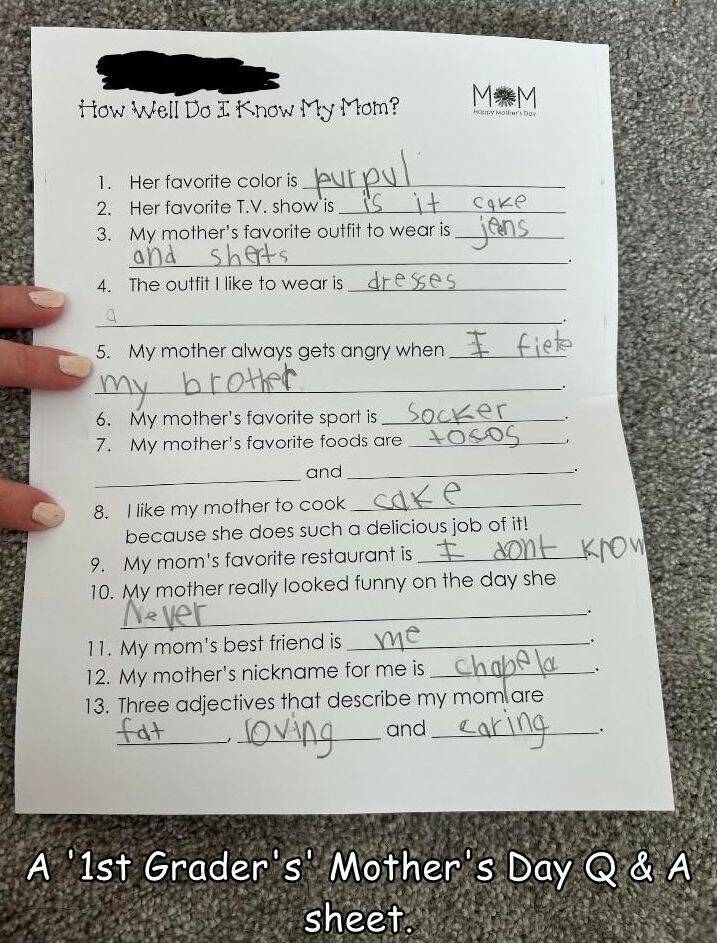 How Well Do I Know My Mom?
MOM
Happy Mother's Day
1. Her favorite color is purpul
2. Her favorite T.V. show is is it cake
3. My mother's favorite outfit to wear is jens
and sherts.
4. The outfit I like to wear is dresses
a.
5. My mother always gets angry when I fiete
my brother.
6. My mother's favorite sport is Socker.
7. My mother's favorite foods are tosos,
and.
8. I like my mother to cook cake
because she does such a delicious job of it!
9. My mom's favorite restaurant is I dont know
10. My mother really looked funny on the day she
Never.
11. My mom's best friend is me.
12. My mother's nickname for me is chapela.
13. Three adjectives that describe my mom are
fat, loving and caring.
A '1st Grader's' Mother's Day Q & A
sheet.